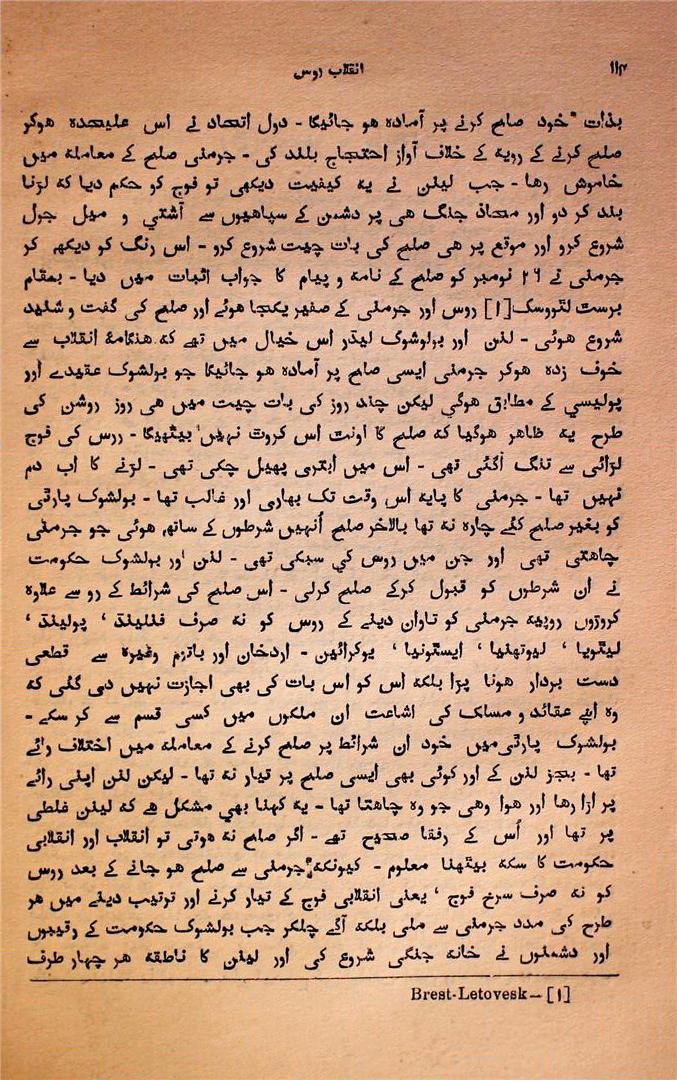 ۱۱۴ انقلاب روس
بذات خود صلح کرنے پر آمادہ ہو جائیگا - دول اتحاد نے اس علیحدہ ہوکر
صلح کرنے کے رویہ کے خلاف آواز احتجاج بلند کی - جرمنی صلح کے معاملہ میں
خاموش رہا - جب لینن نے یہ کیفیت دیکھی تو فوج کو حکم دیا کہ لڑنا
بند کر دو اور محاذ جنگ ہی پر دشمن کے سپاہیوں سے آشتی و میل جول
شروع کرو اور موقع پر ہی صلح کی بات چیت شروع کرو - اس رنگ کو دیکھ کر
جرمنی نے ۲۶ نومبر کو صلح کے نامہ و پیام کا جواب اثبات میں دیا - بمقام
برست لٹووسک[۱] روس اور جرمنی کے سفیر یکجا ہوئے اور صلح کی گفت و شنید
شروع ہوئی - لنن اور بولوشوک لیڈر اس خیال میں تھے کہ ہنگامۂ انقلاب سے
خوف زدہ ہوکر جرمنی ایسی صلح پر آمادہ ہو جائیگا جو بولشوک عقیدے اور
پولیسی کے مطابق ہوگی لیکن چند روز کی بات چیت میں ہی روز روشن کی
طرح یہ ظاہر ہوگیا کہ صلح کا اونٹ اس کروٹ نہیں بیٹھیگا - روس کی فوج
لڑائی سے تنگ آگئی تھی - اس میں ابتری پھیل چکی تھی - لڑنے کا اب دم
نہیں تھا - جرمنی کا پایہ اس وقت تک بھاری اور غالب تھا - بولشوک پارٹی
کو بغیر صلح کئے چارہ نہ تھا بالآخر صلح اُنہیں شرطوں کے ساتھ ہوئی جو جرمنی
چاہتی تھی اور جن میں روس کی سبکی تھی - لنن اور بولشوک حکومت
نے ان شرطوں کو قبول کرکے صلح کرلی - اس صلح کی شرائط کے رو سے علاوہ
کروڑوں روپیہ جرمنی کو تاوان دینے کے روس کو نہ صرف فنلینڈ ، پولینڈ ،
لیٹویا ، لیوتھنیا ، ایسٹونیا ، یوکرائین - اردخان اور باتزم وغیرہ سے قطعی
دست بردار ہونا پڑا بلکہ اس کو اس بات کی بھی اجازت نہیں دی گئی کہ
وہ اپنے عقائد و مسلک کی اشاعت ان ملکوں میں کسی قسم سے کر سکے -
بولشوک پارٹی میں خود ان شرائط پر صلح کرنے کے معاملہ میں اختلاف رائے
تھا - بجز لنن کے اور کوئی بھی ایسی صلح پر تیار نہ تھا - لیکن لنن اپنی رائے
پر اڑا رہا اور ہوا وہی جو وہ چاہتا تھا - یہ کہنا بھی مشکل ہے کہ لینن غلطی
پر تھا اور اُس کے رفقا صحیح تھے - اگر صلح نہ ہوتی تو انقلاب اور انقلابی
حکومت کا سکہ بیٹھنا معلوم - کیونکہ جرمنی سے صلح ہو جانے کے بعد روس
کو نہ صرف سرخ فوج ، یعنی انقلابی فوج کے تیار کرنے اور ترتیب دینے میں ہر
طرح کی مدد جرمنی سے ملی بلکہ آگے چلکر جب بولشوک حکومت کے رقیبوں
اور دشمنوں نے خانہ جنگی شروع کی اور لینن کا ناطقہ ہر چہار طرف
Brest-Letovesk—[۱]